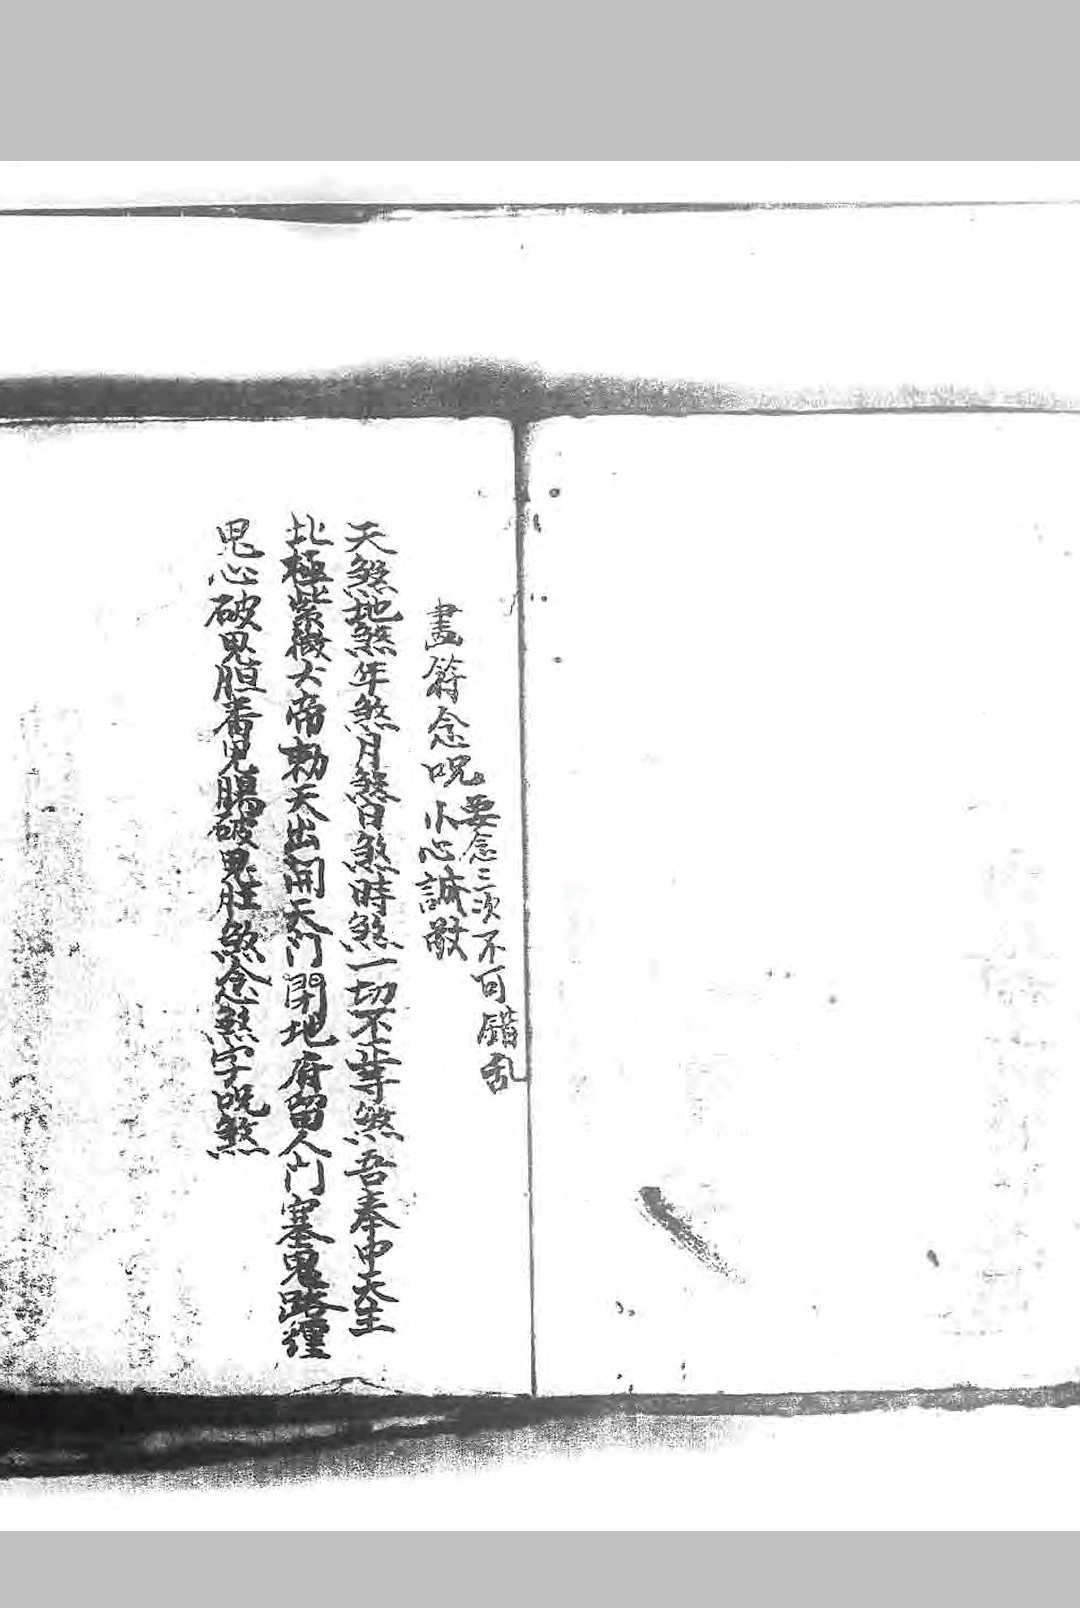 畫符念咒
要念三次不可錯乱
小心誠敬
天煞地煞年煞月煞日煞時煞一切不正等煞吾奉中天主
北極紫微大帝勅天出開天門閉地府留人門塞鬼路徑
鬼心破鬼胆番鬼腸破鬼肚煞念煞字咒煞